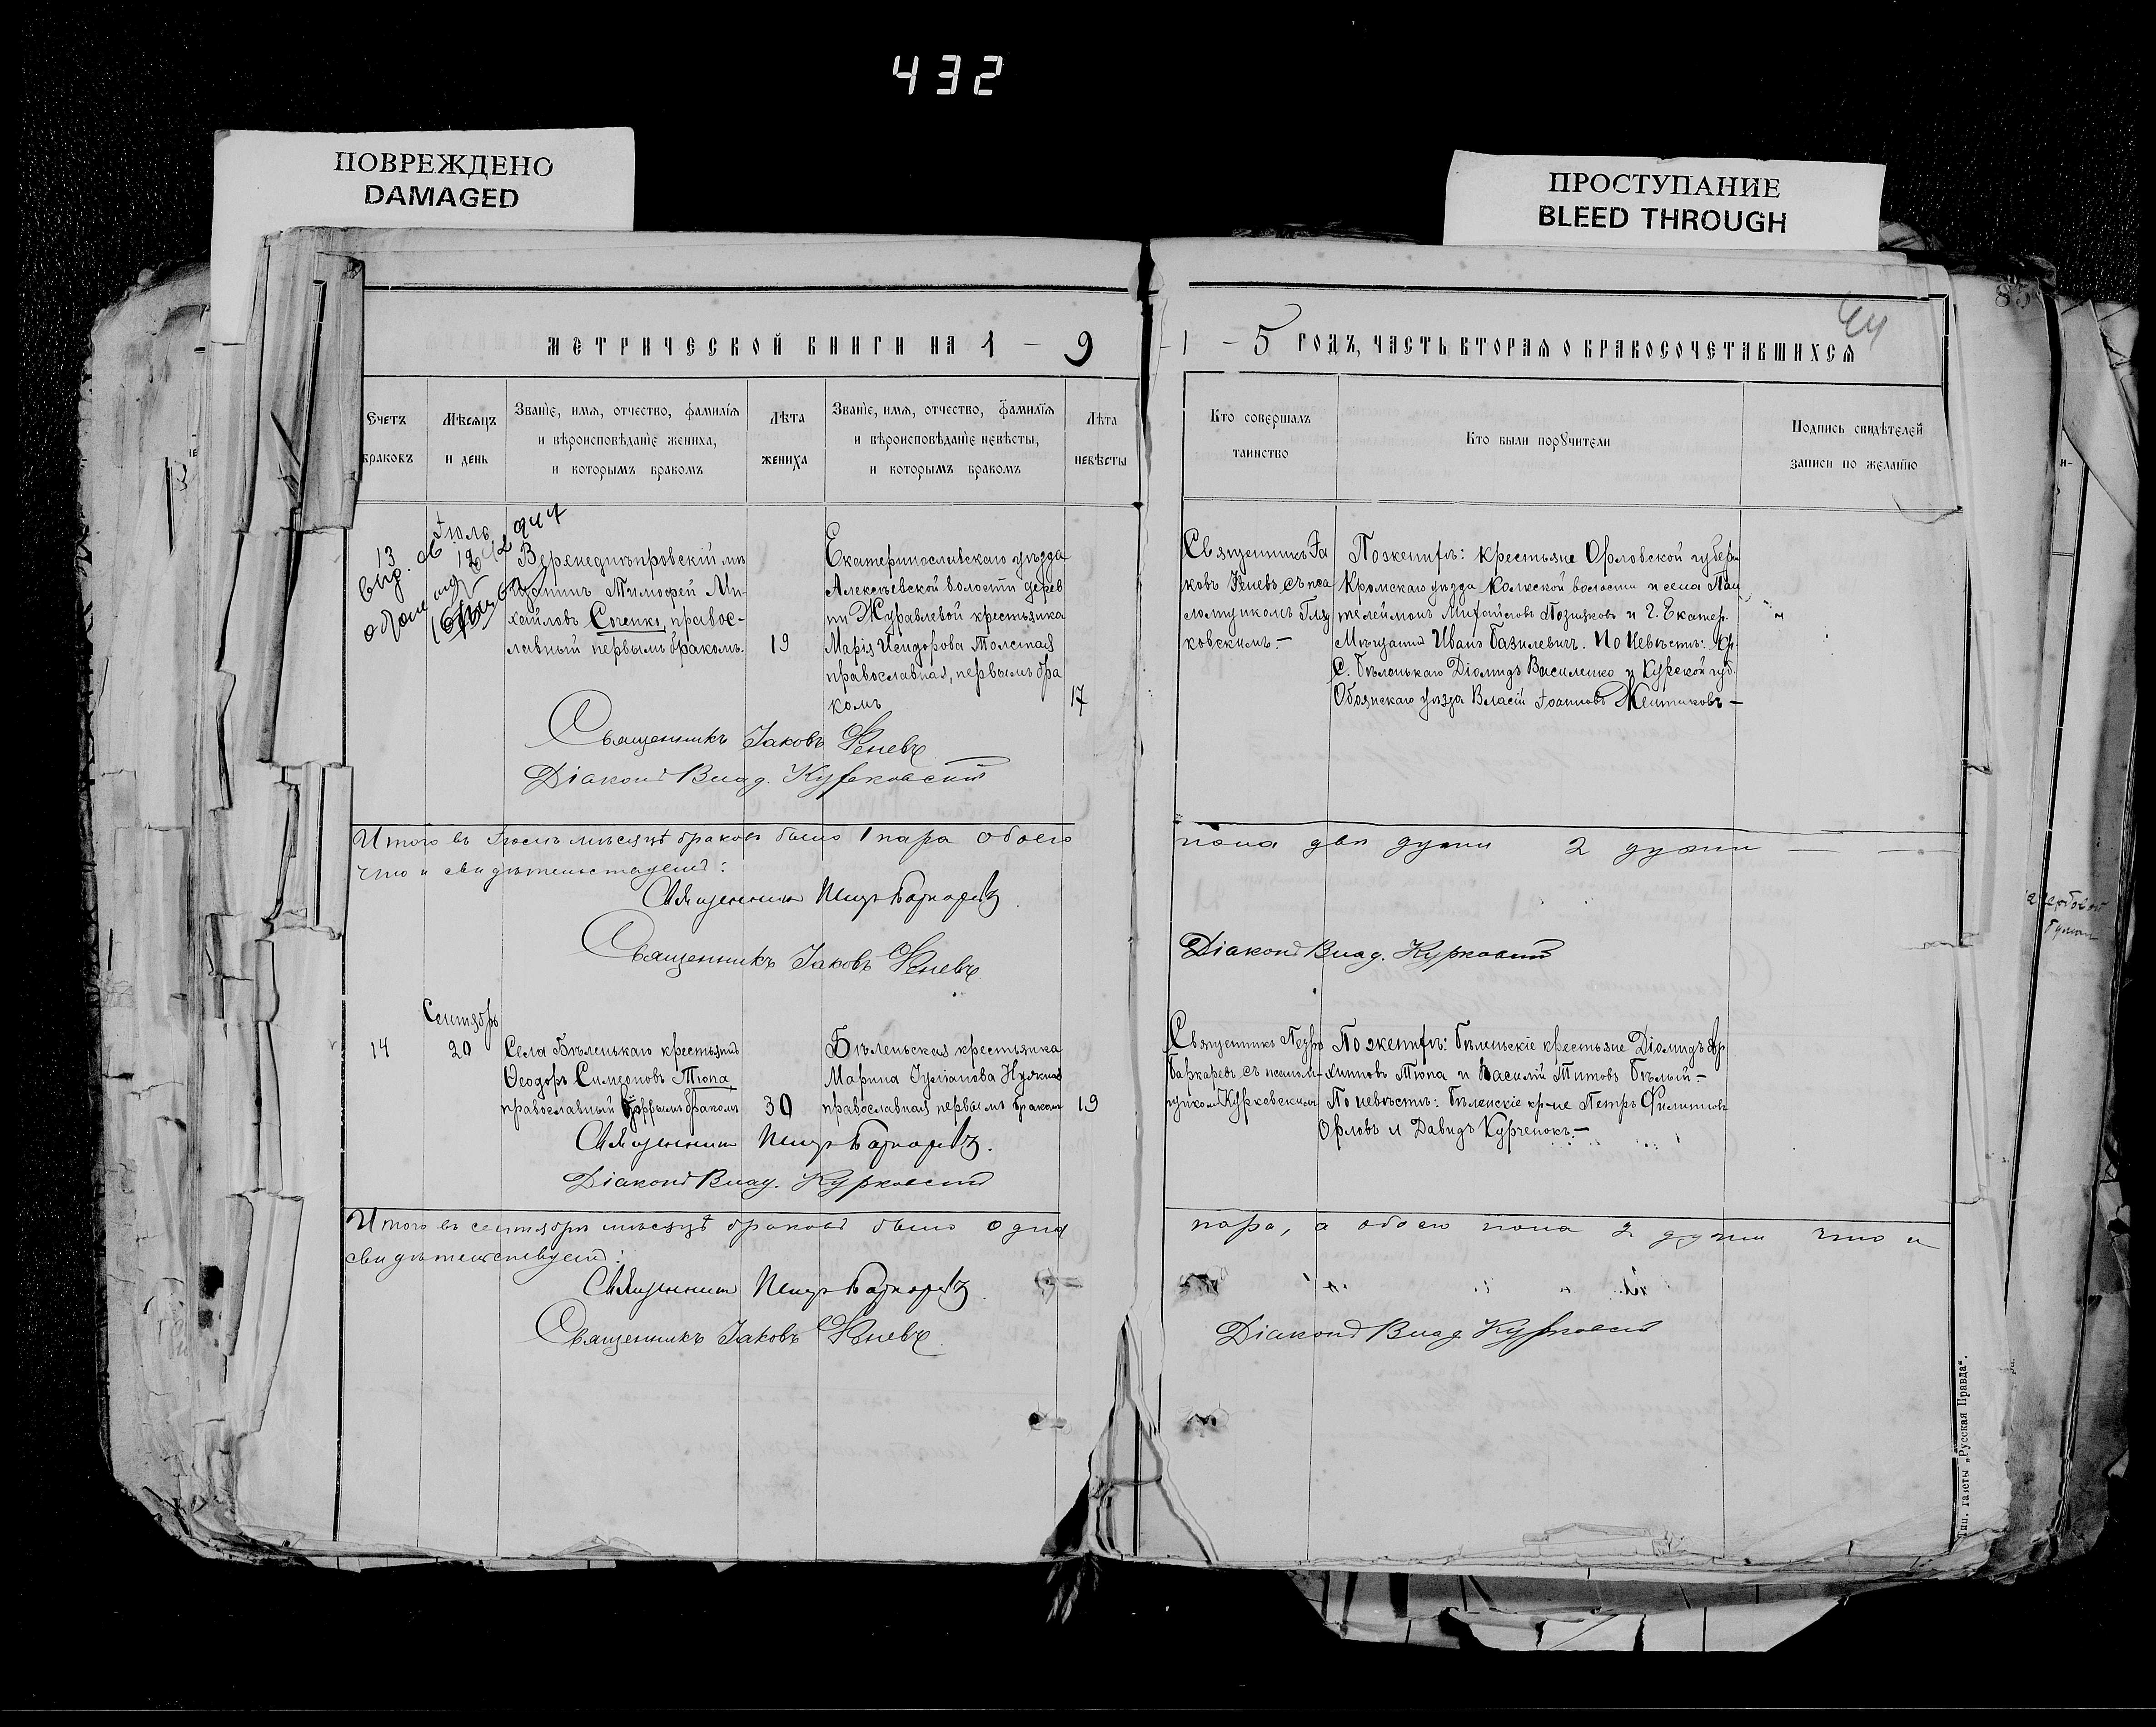 432
ПОВРЕЖДЕНО
DAMAGED
ПРОСТУПАНИЕ
BLEED THROUGH
85
44
МЕТРИЧЕСКОЙ КНИГИ НА 1 – 9
– 1 – 5 ГОДЪ, ЧАСТЬ ВТОРАЯ О БРАКОСОЧЕТАВШИХСЯ
Счетъ
браковъ
Мѣсяцъ
и день
Званіе, имя, отчество, фамилія
и вѣроисповѣданіе жениха,
и которымъ бракомъ
Лѣта
жениха
Званіе, имя, отчество, фамилія
и вѣроисповѣданіе невѣсты,
и которымъ бракомъ
Лѣта
невѣсты
Кто совершалъ
таинство
Кто были поручители
Подпись свидѣтелей
записи по желанію
13
Іюль
12
Верхнеднѣпровскій мѣ
щанинъ Тимофей Ми-
хайловъ Соченко, правос-
лавный первымъ бракомъ.
19
Екатеринославскаго уѣзда
Алексѣевской волости дерев
ни Журавлевой крестьянка
Марія Исидорова Толстая
православная, первымъ бра
комъ
17
Священникъ Іа
ковъ Кеневъ съ пса
ломщикомъ
ковскимъ. –
По женихѣ: крестьяне Орловской губерн
Кромскаго уѣзда волости и села Пан
телеймонъ Михайловъ Позняковъ и г. Екатер.
Мѣщанинъ Иванъ Базилевичъ. По невѣстѣ: Кр.
С. Бѣленькаго Діомидъ Василенко и Курской губ.
Обоянскаго уѣзда Власій Іоанновъ –
Священникъ Іаковъ Кеневъ
Діаконъ Влад. Курковскій
Итого въ Іюлѣ мѣсяцѣ браковъ было 1 пара обоего
пола двѣ души 2 души — —
что и свидѣтельствуемъ:
Священникъ Петръ Баккаревъ.
Священникъ Іаковъ Кеневъ.
Діаконъ Влад. Курковскій
14
Сентябрь
20
Села Бѣленькаго крестьянинъ
Ѳеодоръ Симеоновъ Тюпа
православный бракомъ
30
Бѣленьская крестьянка
Марина Іуліанова
православная первымъ бракомъ
19
Священникъ Петръ
Баккаревъ съ псалом-
щикомъ Курковскимъ
По женихѣ: Бѣленьскіе крестьяне Діомидъ Ар
хиповъ Тюпа и Василій Титовъ Бѣлый. –
По невѣстѣ: Бѣленскіе кр-не Петръ Филиповъ
Орловъ и Давидъ Курченокъ. –
Священникъ Петръ Баккаревъ.
Діаконъ Влад. Курковскій
Итого въ сентябрѣ мѣсяцѣ браковъ было одна
пара, а обоего пола 2 души что и
свидѣтельствуемъ:
Священникъ Петръ Баккаревъ.
Священникъ Іаковъ Кеневъ.
Діаконъ Влад. Курковскій
Тип. газеты „Русская Правда“.